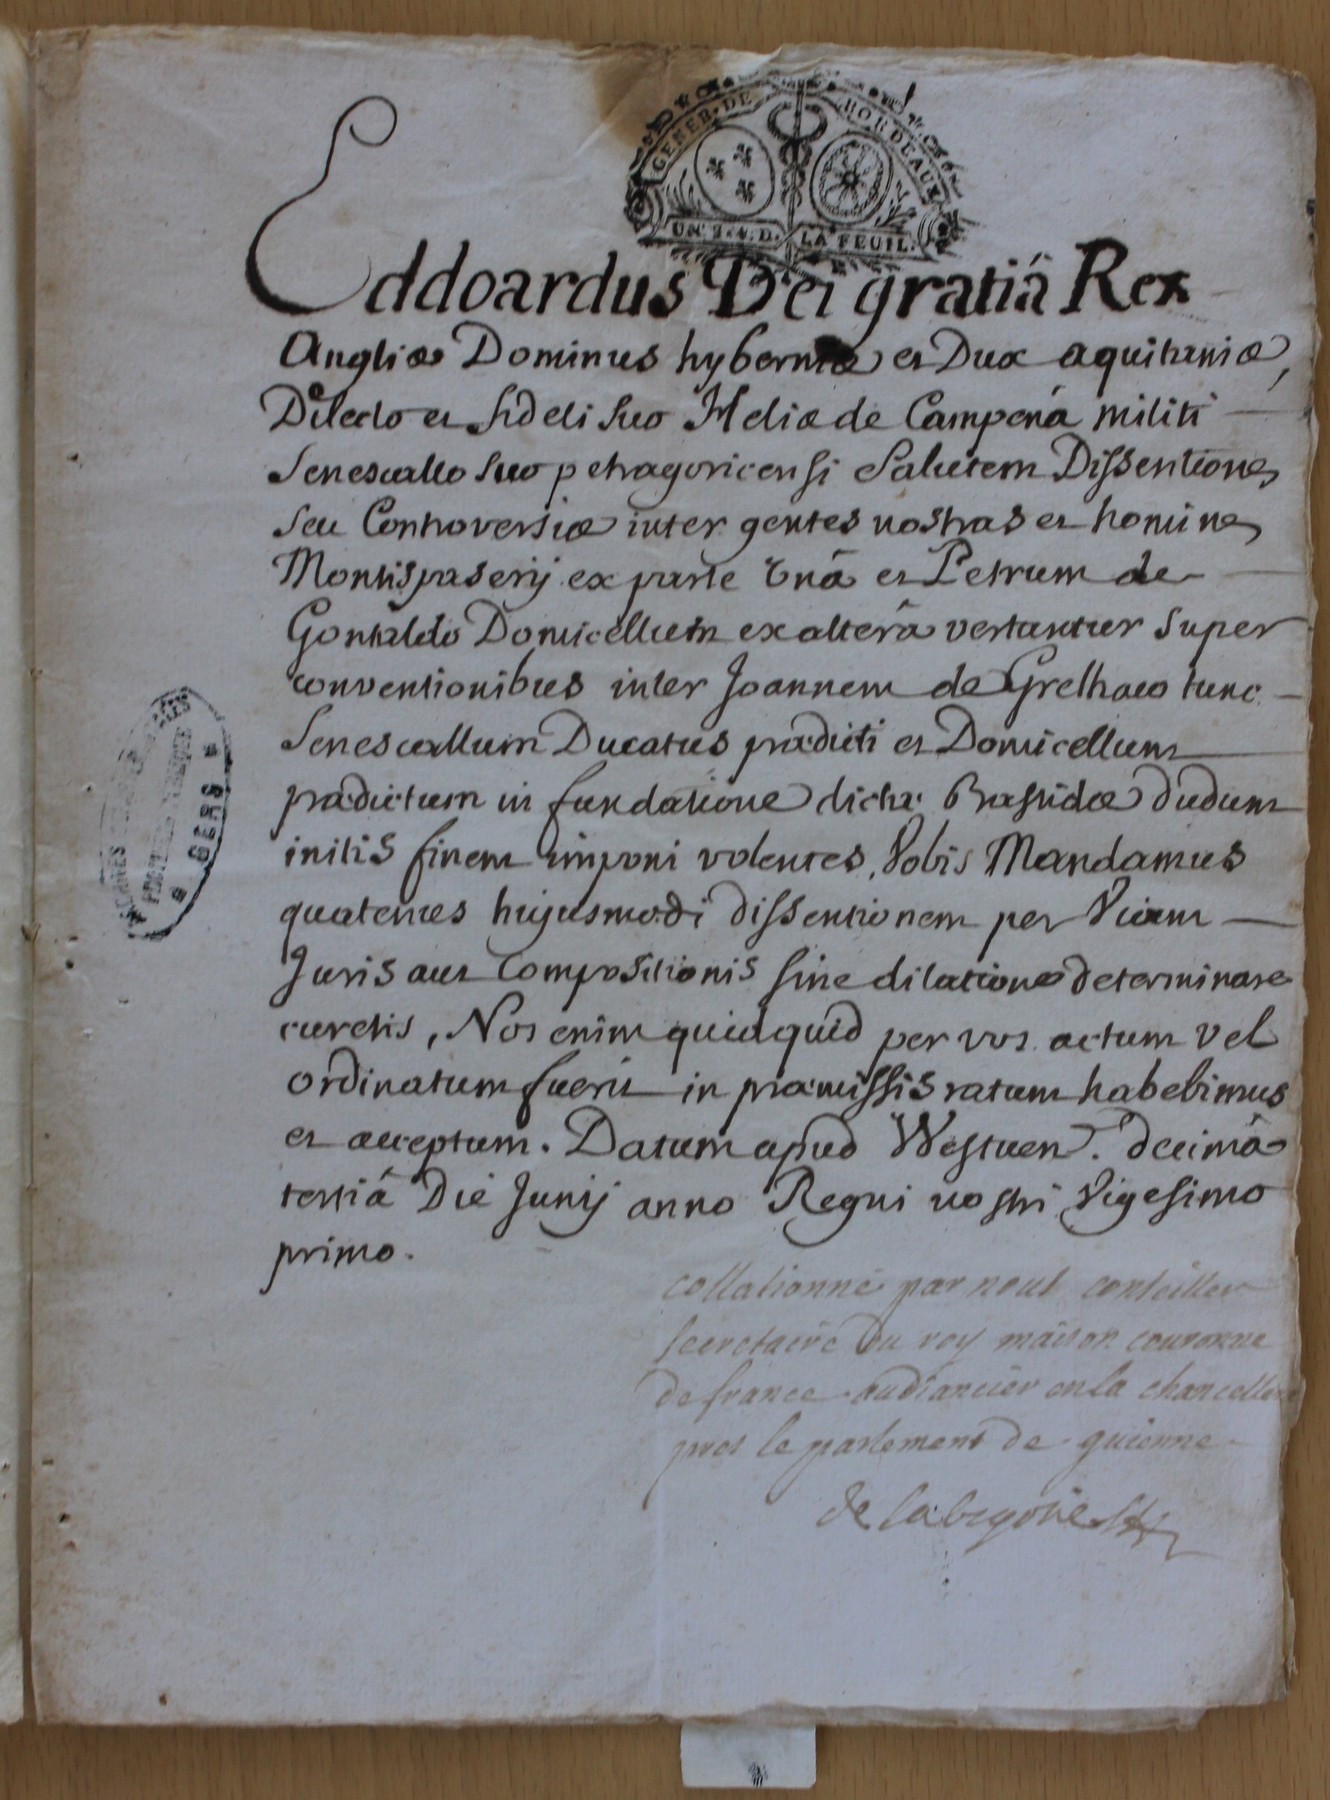 GENER. DE BORDEAUX
UN. S. 4. D. LA FEUIL.
Eddoardus Dei gratiâ Rex
Angliæ Dominus hyberniæ et Dux aquitaniæ,
Dilecto et fideli suo Heliæ de Campenâ militi
Senescallo suo petragoricensi Salutem Dissentiones
seu Controversiæ inter gentes nostras et homines
Montispaserij ex parte Unâ et Petrum de
Gontaldo Domicellum ex alterâ vertantur super
conventionibus inter Joannem de Grelhaco tunc
Senescallum Ducatus prædicti et Domicellum
prædictum in fundatione dictæ Bastidæ dudum
initis finem imponi volentes, Vobis Mandamus
quatenus hujusmodi dissentionem per Viam
Juris aut Compositionis sine dilatione determinare
curetis, Nos enim quidquid per vos actum vel
ordinatum fuerit in præmissis ratum habebimus
et acceptum. Datum apud Westuen. decimâ
tertiâ Die Junij anno Regni nostri Vigesimo
primo.
collationné par nous conseiller
secretaire du roy maison couronne
de france audiancier en la chancellerie
pres le parlement de guienne
de labegorie
GERS